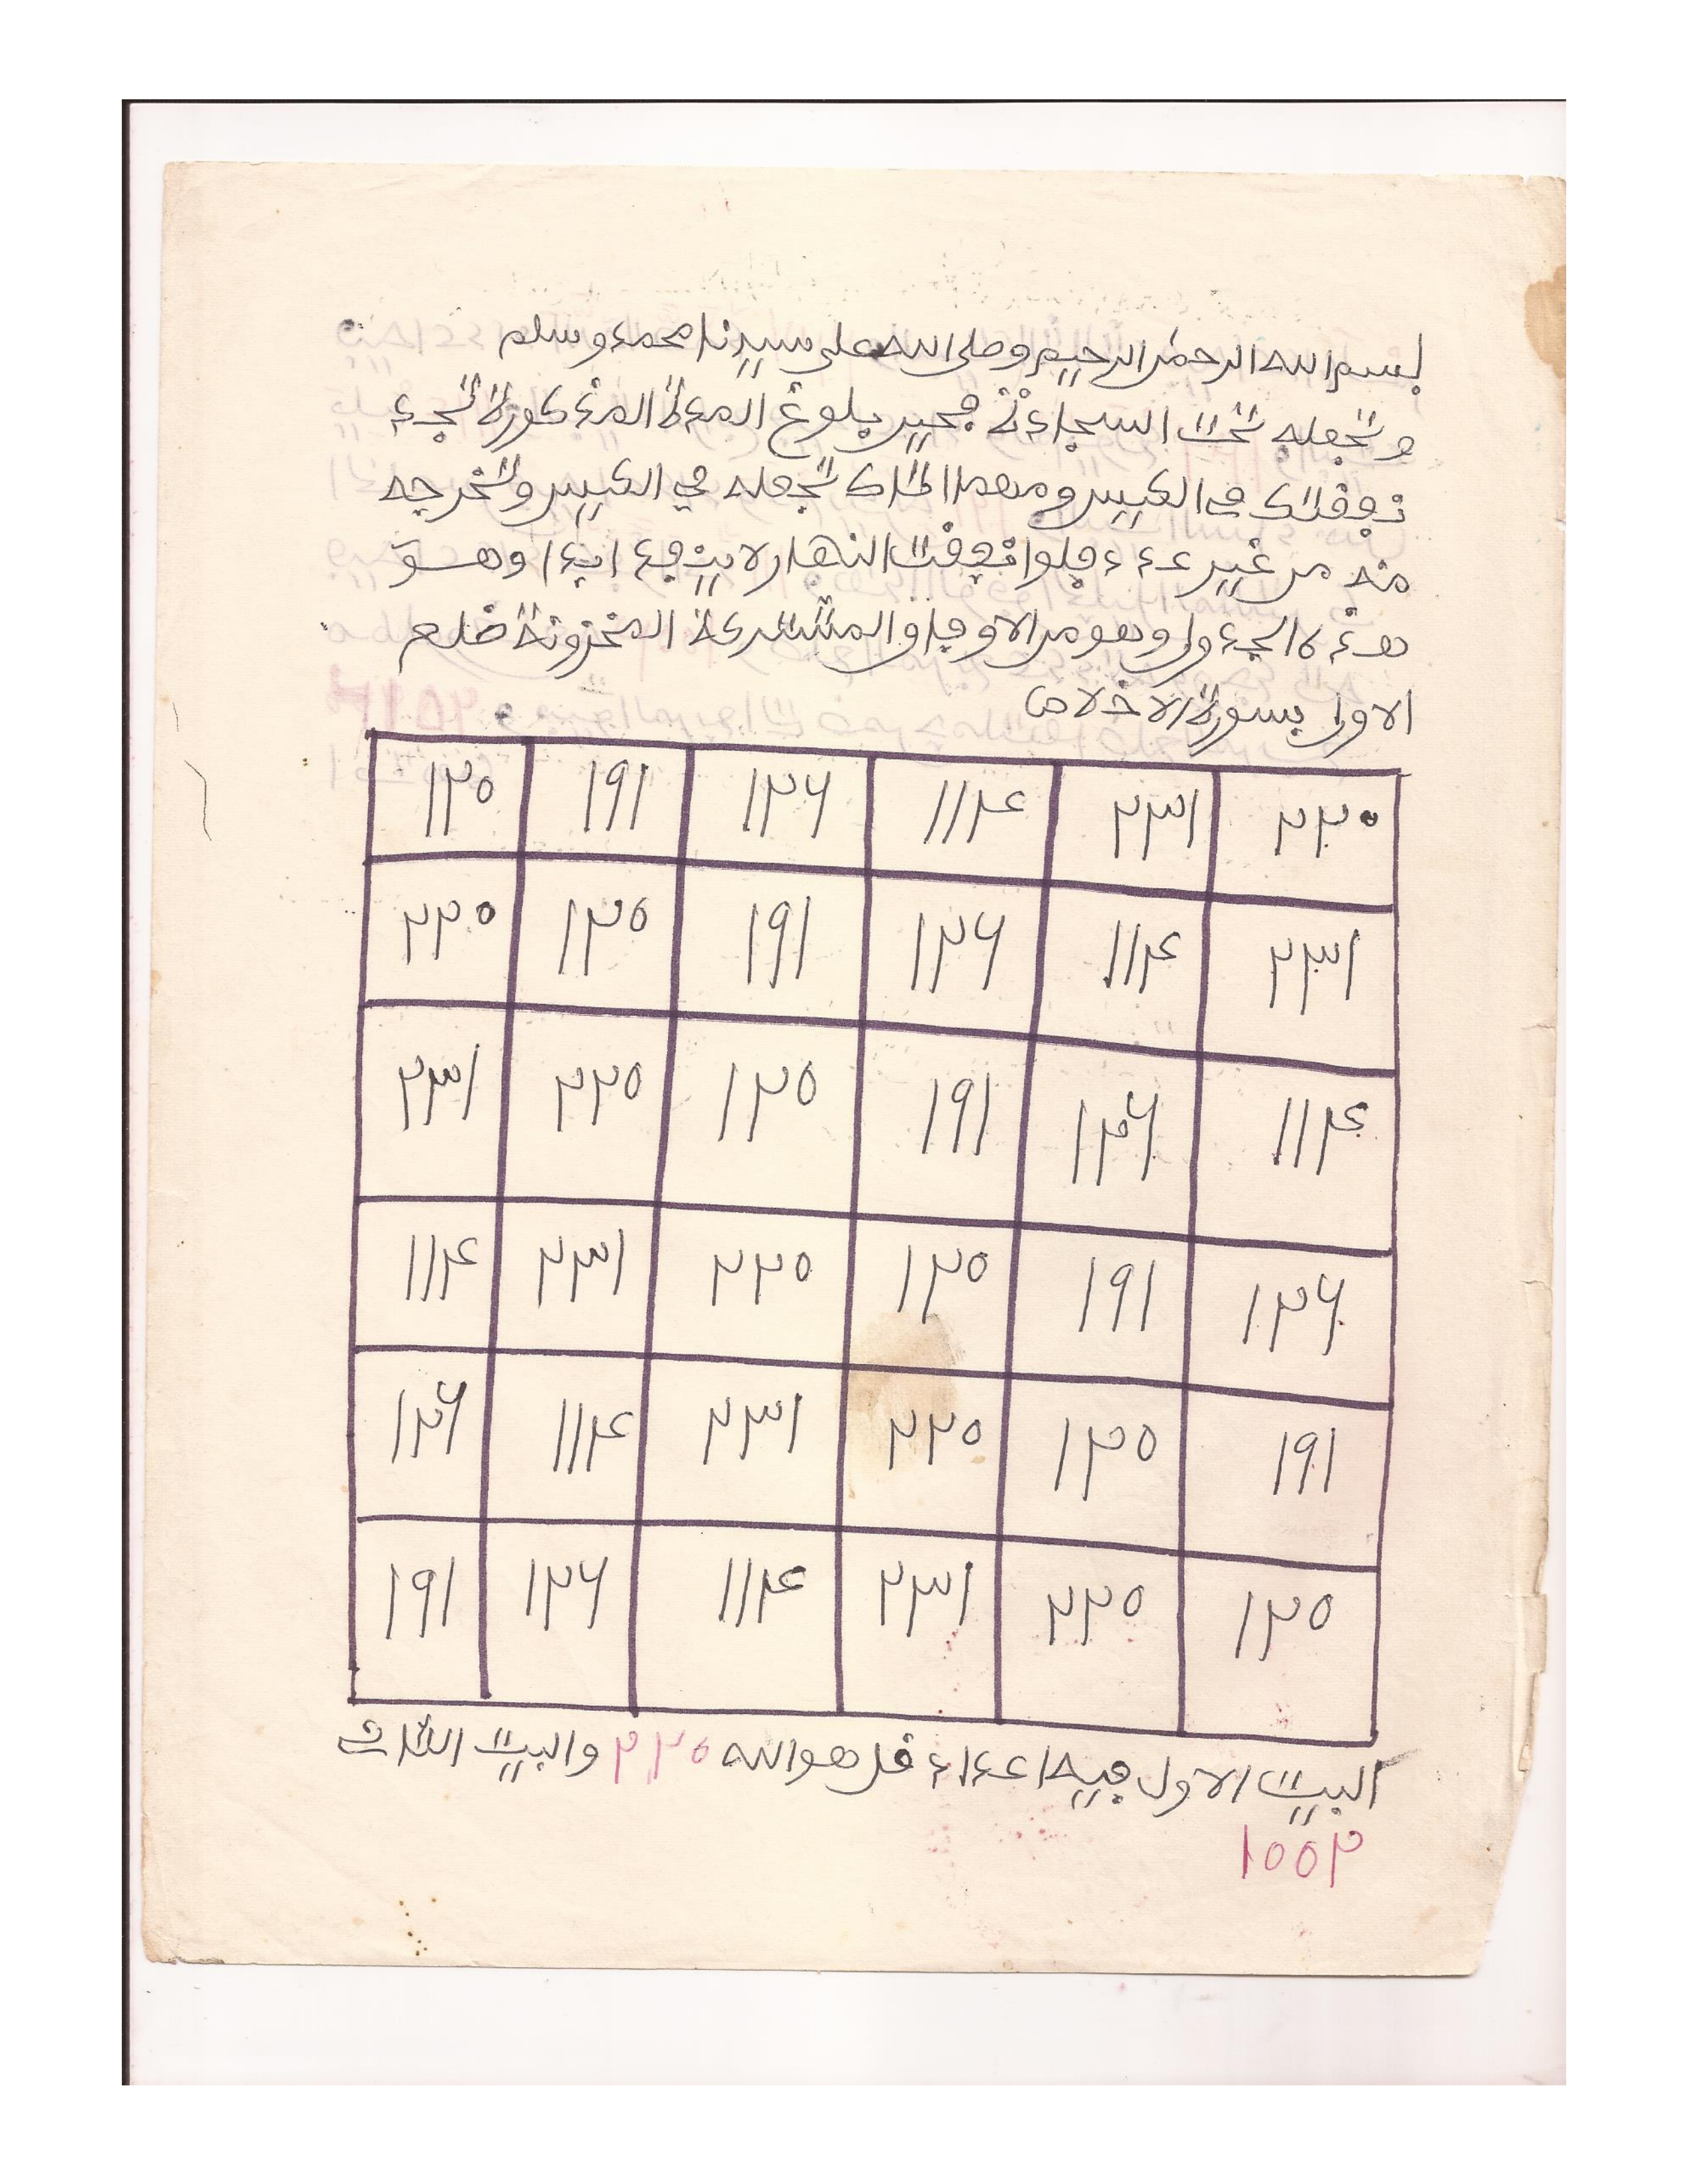 بسم الله الرحمن الرحيم وصلى الله على سيدنا محمد وسلم
وتجعله تحت السجادة فحين بلوغ المدة المذكورة تجد
نفقتك في الكيس ومهما تجعله في الكيس وتخرجه
منه من غير عدد فلو انفقت النهار لا ينفد ابدا وهو
هذه الجدول وهو من الاوفاق المشتركة المخزونة ضلع
الاول بسورة الاخلاص
١٢٥ ١٩١ ١٢٦ ١١٢٤ ٢٣١ ٢٢٥
٢٢٥ ١٢٥ ١٩١ ١٢٦ ١١٢٤ ٢٣١
٢٣١ ٢٢٥ ١٢٥ ١٩١ ١٢٦ ١١٢٤
١١٢٤ ٢٣١ ٢٢٥ ١٢٥ ١٩١ ١٢٦
١٢٦ ١١٢٤ ٢٣١ ٢٢٥ ١٢٥ ١٩١
١٩١ ١٢٦ ١١٢٤ ٢٣١ ٢٢٥ ١٢٥
البيت الاول فيه اعداد قل هو الله ٢٢٥ والبيت الثاني
١٥٥٢